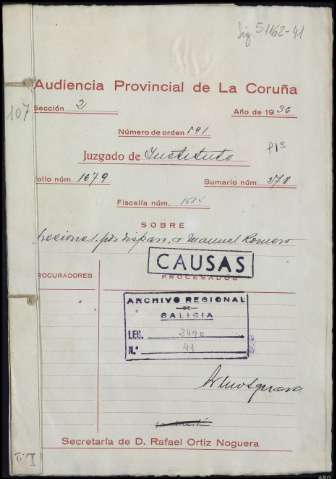 Sig 5162-41
Audiencia Provincial de La Coruña
107
Sección 2 Año de 1936
Número de orden 591
Juzgado de Instituto
Folio núm. 1079 Sumario núm. 378
Fiscalía núm.
SOBRE
Manuel Romero
CAUSAS
PROCURADORES PROCESADOS
ARCHIVO REGIONAL
DE
GALICIA
LEG. 2490
N.º 41
Secretaría de D. Rafael Ortiz Noguera